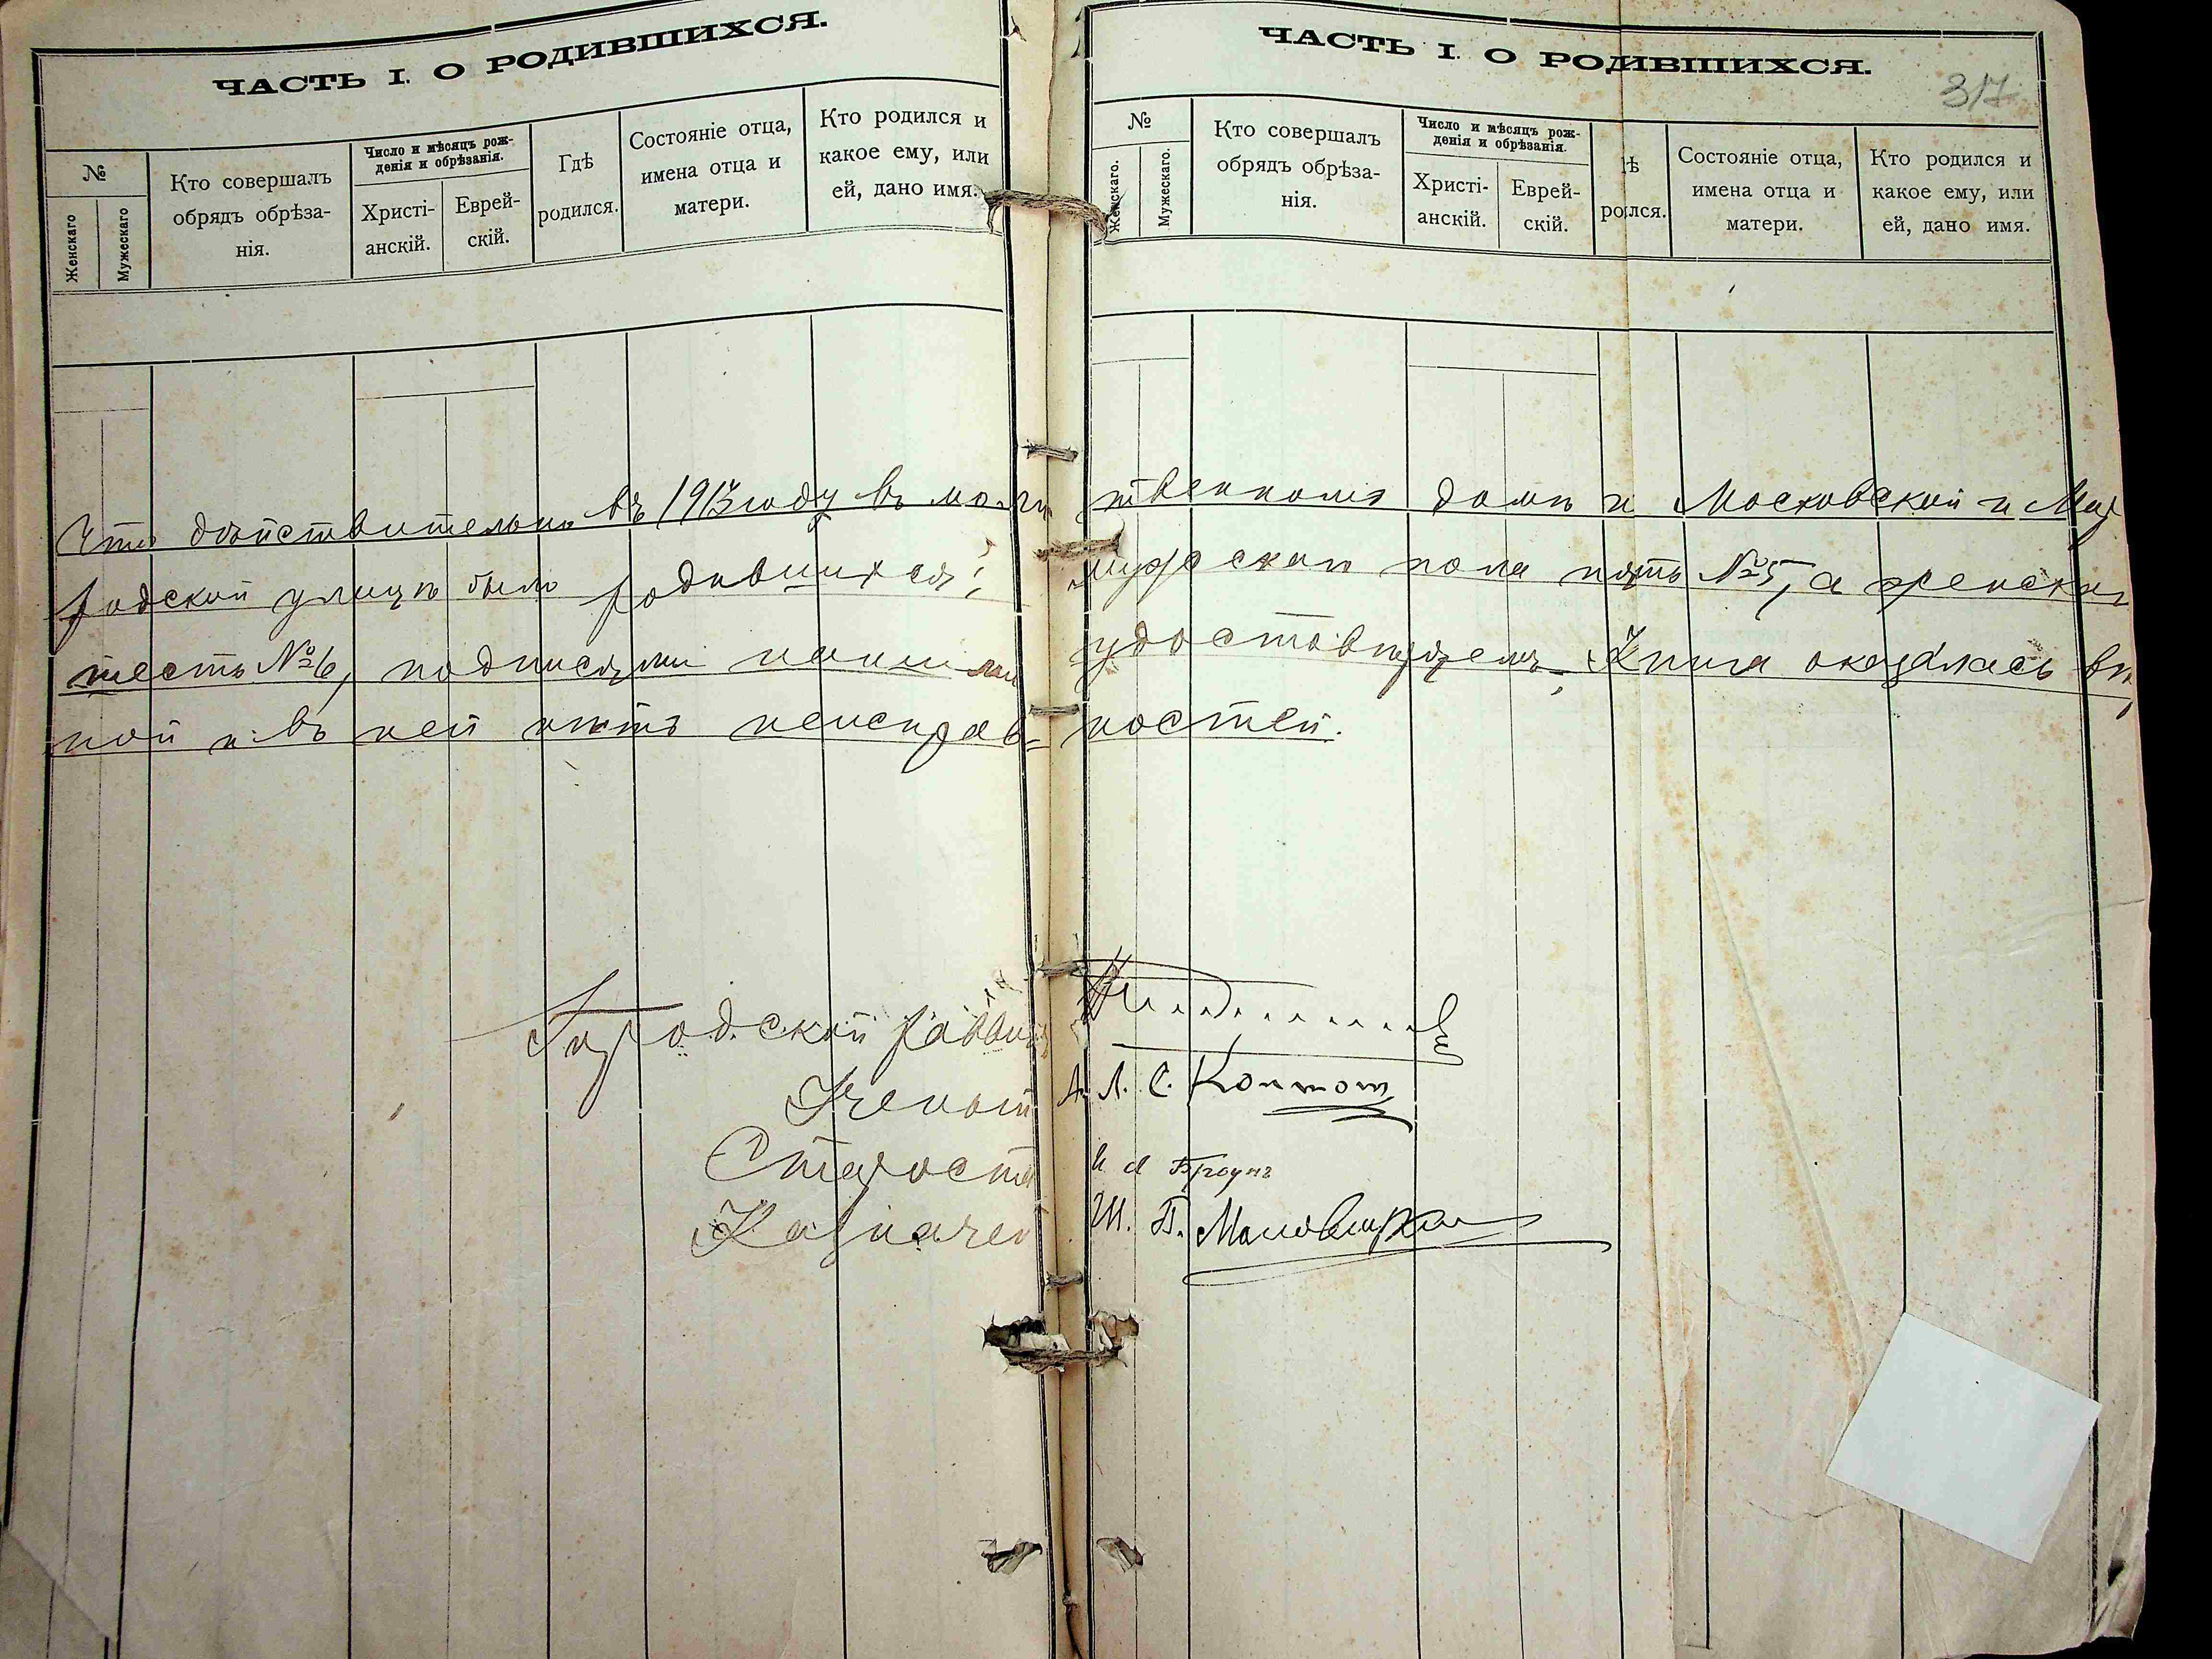 ЧАСТЬ I. О РОДИВШИХСЯ.
№
Женскаго
Мужескаго
Кто совершалъ
обрядъ обрѣза-
нія.
Число и мѣсяцъ рож-
денія и обрѣзанія.
Христі-
анскій.
Еврей-
скій.
Гдѣ
родился.
Состояніе отца,
имена отца и
матери.
Кто родился и
какое ему, или
ей, дано имя.
ЧАСТЬ I. О РОДИВШИХСЯ.
317
№
Женскаго.
Мужескаго.
Кто совершалъ
обрядъ обрѣза-
нія.
Число и мѣсяцъ рож-
денія и обрѣзанія.
Христі-
анскій.
Еврей-
скій.
дѣ
родился.
Состояніе отца,
имена отца и
матери.
Кто родился и
какое ему, или
ей, дано имя.
Что дѣйствительно въ 1913 году въ моли твенномъ домѣ Московской и
родской улицѣ было родившихся: мужескаго пола пять №5, а женскаго
шесть №6, подписями нашими удостовѣряемъ, Книга оказалась вѣр
ной и въ ней нѣтъ неисправ= ностей.
Городской раввинъ
Ученый А. Л. С. Колтон
Староста И А Браунъ
Казначей Ш. Б.